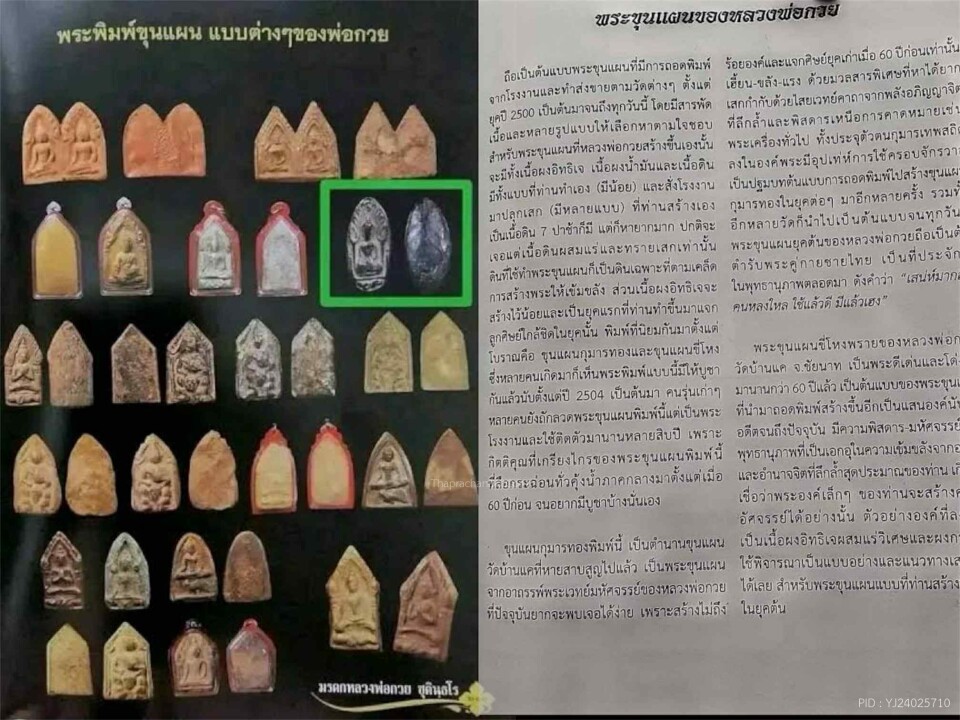 พระพิมพ์ขุนแผน แบบต่างๆของพ่อกวย
มรดกหลวงพ่อกวย ชุตินฺธโร
พระขุนแผนของหลวงพ่อกวย
ถือเป็นต้นแบบพระขุนแผนที่มีการถอดพิมพ์
จากโรงงานและทำส่งขายตามวัดต่างๆ ตั้งแต่
ยุคปี 2500 เป็นต้นมาจนถึงทุกวันนี้ โดยมีสารพัด
เนื้อและหลายรูปแบบให้เลือกหาตามใจชอบ
สำหรับพระขุนแผนที่หลวงพ่อกวยสร้างขึ้นเองนั้น
จะมีทั้งเนื้อผงอิทธิเจ เนื้อผงน้ำมันและเนื้อดิน
มีทั้งแบบที่ท่านทำเอง (มีน้อย) และสั่งโรงงาน
มาปลุกเสก (มีหลายแบบ) ที่ท่านสร้างเอง
เป็นเนื้อดิน 7 ป่าช้าก็มี แต่ก็หายากมาก ปกติจะ
เจอแต่เนื้อดินผสมแร่และทรายเสกเท่านั้น
ดินที่ใช้ทำพระขุนแผนก็เป็นดินเฉพาะที่ตามเคล็ด
การสร้างพระให้เข้มขลัง ส่วนเนื้อผงอิทธิเจจะ
สร้างไว้น้อยและเป็นยุคแรกที่ท่านทำขึ้นมาแจก
ลูกศิษย์ใกล้ชิดในยุคนั้น พิมพ์ที่นิยมกันมาตั้งแต่
โบราณคือ ขุนแผนกุมารทองและขุนแผนขี่โหง
ซึ่งหลายคนเกิดมาก็เห็นพระพิมพ์แบบนี้มีให้บูชา
กันแล้วนับตั้งแต่ปี 2504 เป็นต้นมา คนรุ่นเก่าๆ
หลายคนยังถักลวดพระขุนแผนพิมพ์นี้แต่เป็นพระ
โรงงานและใช้ติดตัวมานานหลายสิบปี เพราะ
กิตติคุณที่เกรียงไกรของพระขุนแผนพิมพ์นี้
ที่ลือกระฉ่อนทั่วคุ้งน้ำภาคกลางมาตั้งแต่เมื่อ
60 ปีก่อน จนอยากมีบูชาบ้างนั่นเอง
ขุนแผนกุมารทองพิมพ์นี้ เป็นตำนานขุนแผน
วัดบ้านแคที่หายสาบสูญไปแล้ว เป็นพระขุนแผน
จากอาถรรพ์พระเวทย์มหัศจรรย์ของหลวงพ่อกวย
ที่ปัจจุบันยากจะพบเจอได้ง่าย เพราะสร้างไม่ถึง
ร้อยองค์และแจกศิษย์ยุคเก่าเมื่อ 60 ปีก่อนเท่านั้น
เฮี้ยน-ขลัง-แรง ด้วยมวลสารพิเศษที่หาได้ยาก
เสกกำกับด้วยไสยเวทย์คาถาจากพลังอภิญญาจิต
ที่ลึกล้ำและพิสดารเหนือการคาดหมายเช่น
พระเครื่องทั่วไป ทั้งประจุตัวตนกุมารเทพสถิต
ลงในองค์พระมีอุปเท่ห์การใช้ครอบจักรวาล
เป็นปฐมบทต้นแบบการถอดพิมพ์ไปสร้างขุนแผน
กุมารทองในยุคต่อๆ มาอีกหลายครั้ง รวมทั้ง
อีกหลายวัดก็นำไปเป็นต้นแบบจนทุกวัน
พระขุนแผนยุคต้นของหลวงพ่อกวยถือเป็นต้น
ตำรับพระคู่กายชายไทย เป็นที่ประจักษ์
ในพุทธานุภาพตลอดมา ดังคำว่า "เสน่ห์มาก
คนหลงใหล ใช้แล้วดี มีแล้วเฮง"
พระขุนแผนขี่โหงพรายของหลวงพ่อกวย
วัดบ้านแค จ.ชัยนาท เป็นพระดีเด่นและโด่ง
มานานกว่า 60 ปีแล้ว เป็นต้นแบบของพระขุน
ที่นำมาถอดพิมพ์สร้างขึ้นอีกเป็นแสนองค์นับ
อดีตจนถึงปัจจุบัน มีความพิสดาร-มหัศจรรย์
พุทธานุภาพที่เป็นเอกอุในความเข้มขลังจาก
และอำนาจจิตที่ลึกล้ำสุดประมาณของท่าน
เชื่อว่าพระองค์เล็กๆ ของท่านจะสร้างค
อัศจรรย์ได้อย่างนั้น ตัวอย่างองค์ที่ล
เป็นเนื้อผงอิทธิเจผสมแร่วิเศษและผงก
ใช้พิจารณาเป็นแบบอย่างและแนวทาง
ได้เลย สำหรับพระขุนแผนแบบที่ท่านสร้าง
ในยุคต้น
PID : YJ24025710